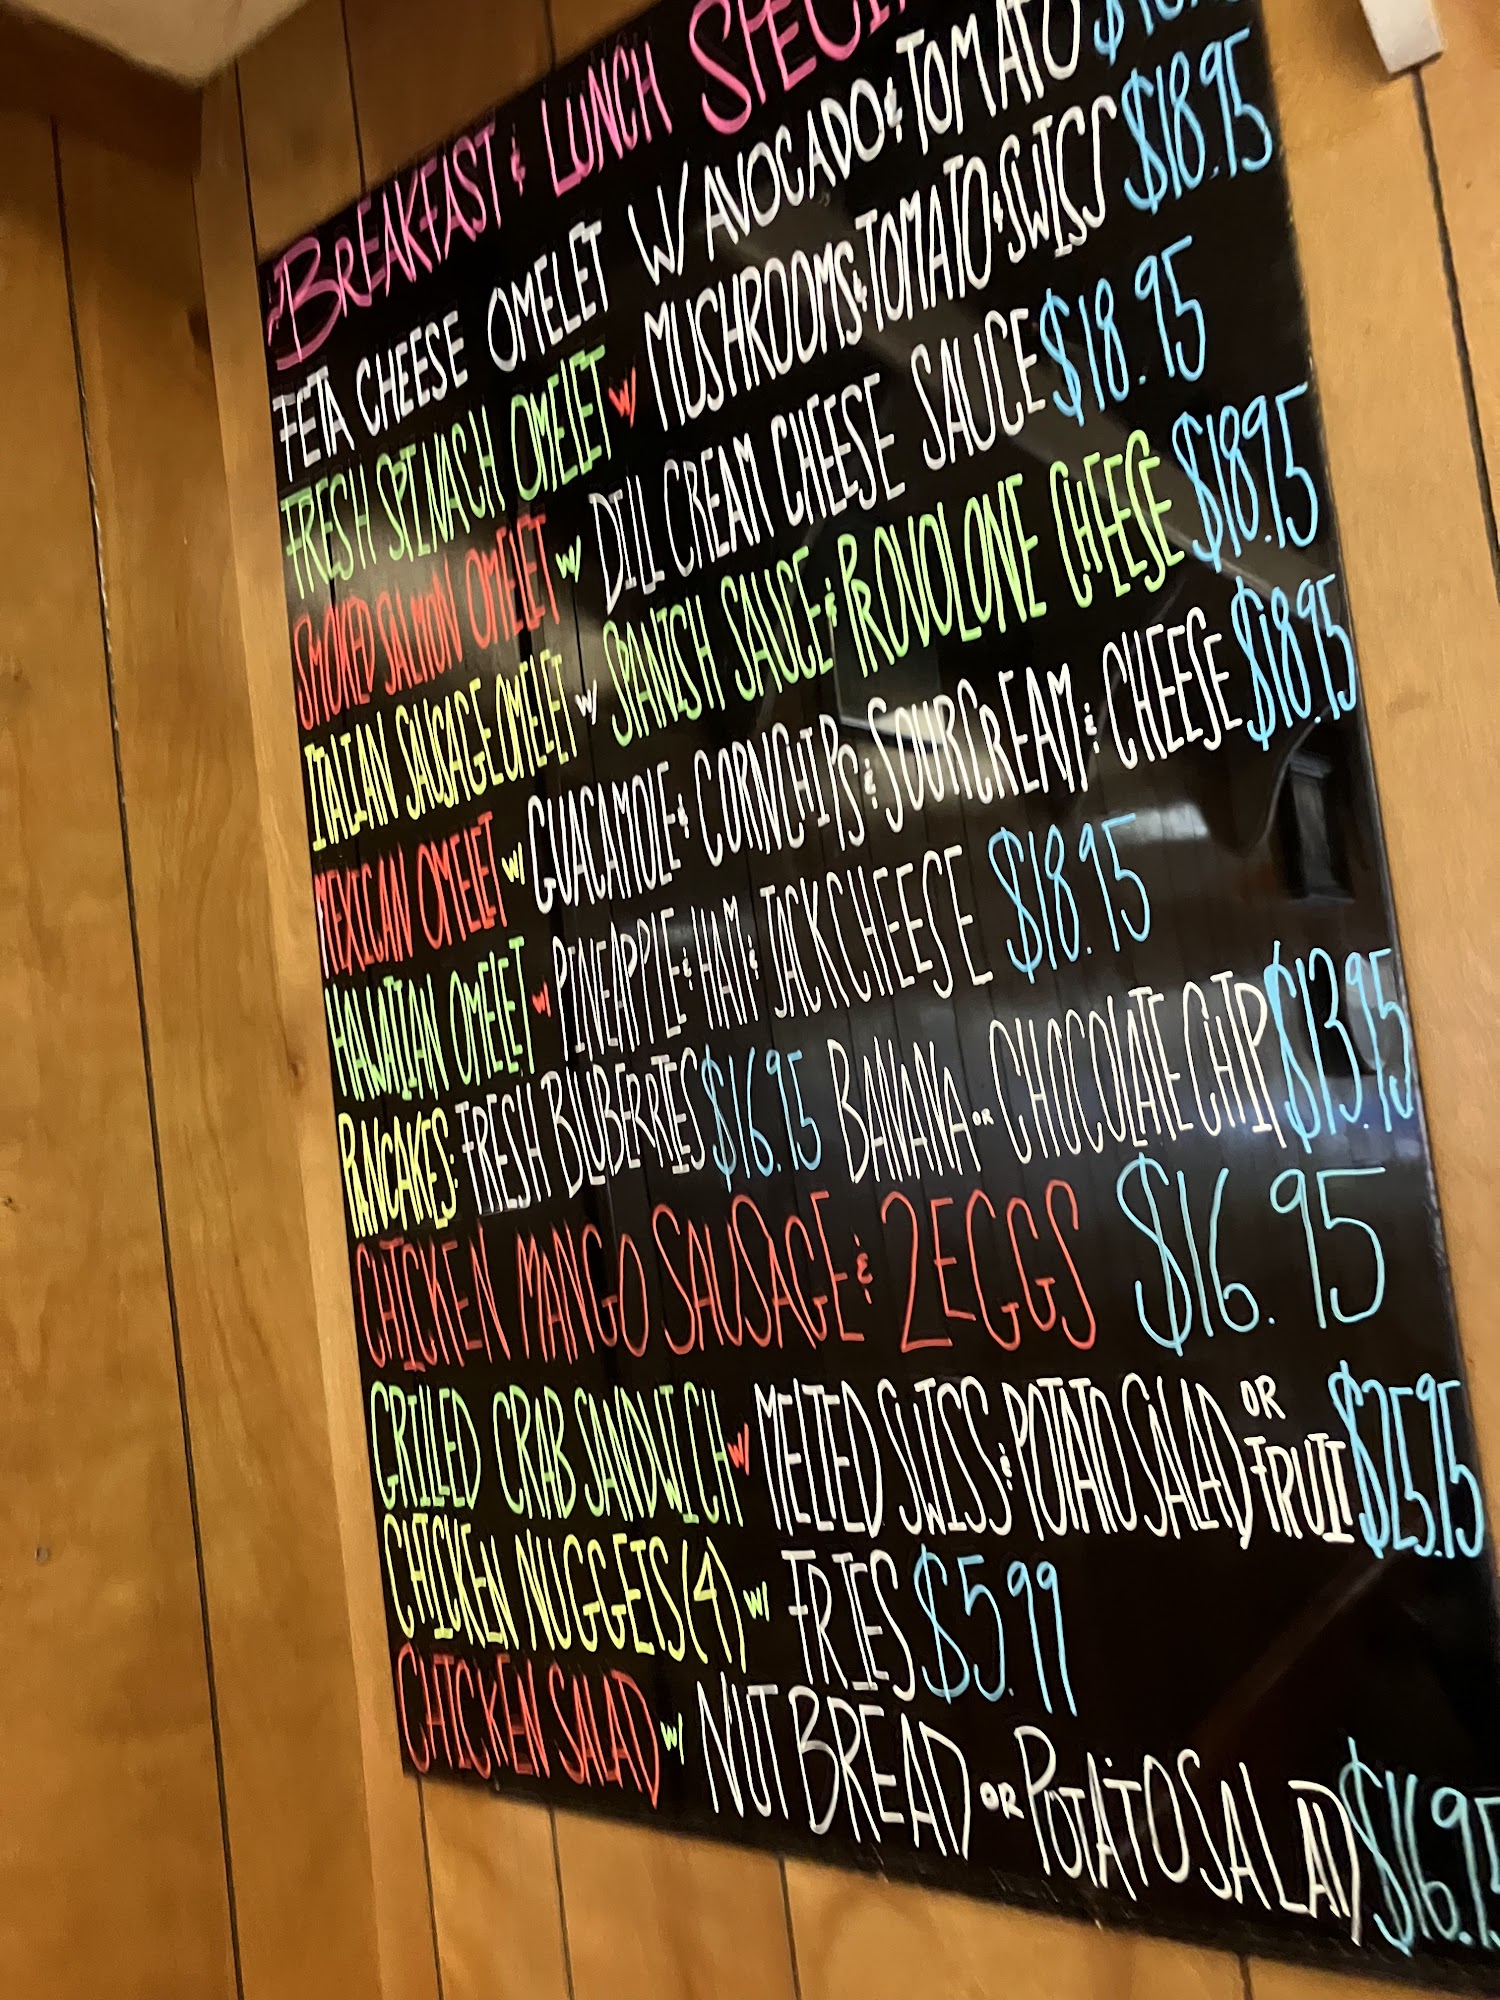 BREAKFAST & LUNCH
FETA CHEESE OMELET W/ AVOCADO & TOMATO
FRESH SPINACH OMELET W/ MUSHROOMS & TOMATO & SWISS $18.95
SMOKED SALMON OMELET W/ DILL CREAM CHEESE SAUCE $18.95
ITALIAN SAUSAGE OMELET W/ SPANISH SAUCE & PROVOLONE CHEESE $18.95
MEXICAN OMELET W/ GUACAMOLE & CORN CHIPS & SOUR CREAM & CHEESE $18.95
HAWAIIAN OMELET W/ PINEAPPLE & HAM & JACK CHEESE $18.95
PANCAKES: FRESH BLUBERRIES $16.95 BANANA OR CHOCOLATE CHIP $13.95
CHICKEN MANGO SAUSAGE & 2 EGGS $16.95
GRILLED CRAB SANDWICH W/ MELTED SWISS & POTATO SALAD OR FRUIT $25.95
CHICKEN NUGGETS (4) W/ FRIES $5.99
CHICKEN SALAD W/ NUT BREAD OR POTATO SALAD $16.95